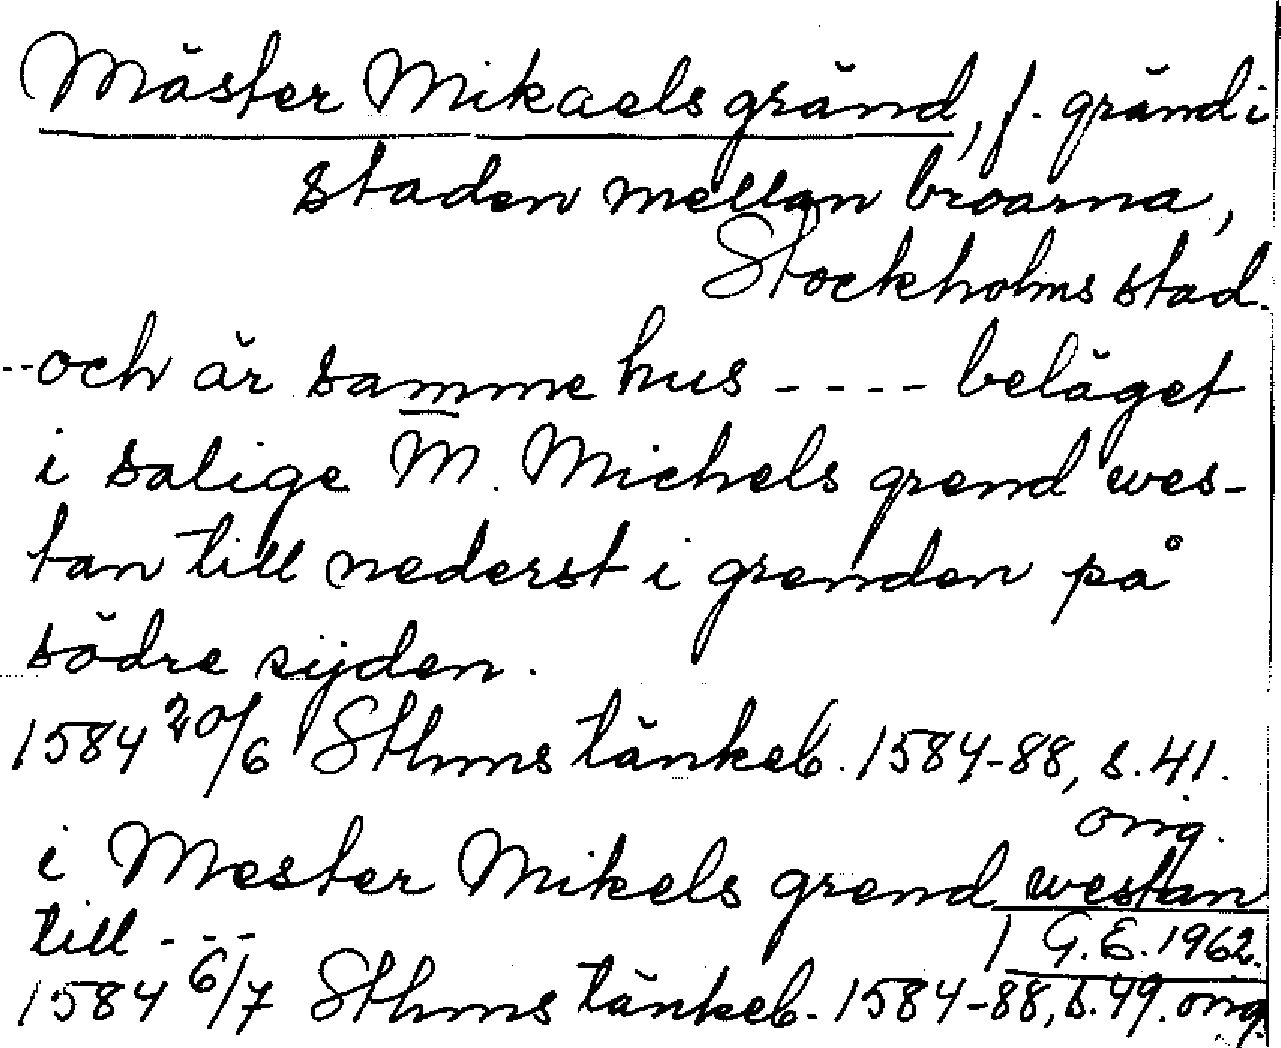 Mäster Mikaels gränd, f. gränd i
staden mellan broarna,
Stockholms stad.
-- och är samme hus - - - - beläget
i salige M. Michels grend wes-
tan till nederst i grenden på
södre sijden.
1584 20/6 Sthms tänkeb. 1584-88, s. 41.
orig.
i Mester Mikels grend westan
till - - -
G. E. 1962.
1584 6/7 Sthms tänkeb. 1584-88, s. 49. orig.